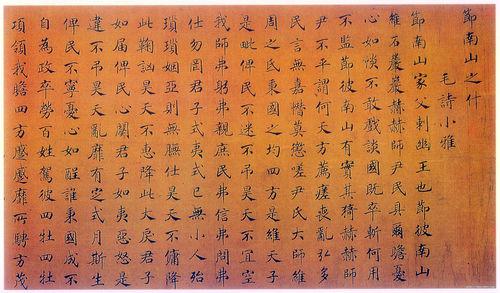 節南山之什
毛詩小雅
節南山家父刺幽王也節彼南山
維石巖巖赫赫師尹民具爾瞻憂
心如惔不敢戲談國既卒斬何用
不監節彼南山有實其猗赫赫師
尹不平謂何天方薦瘥喪亂弘多
民言無嘉憯莫懲嗟尹氏大師維
周之氐秉國之均四方是維天子
是毗俾民不迷不弔昊天不宜空
我師弗躬弗親庶民弗信弗問弗
仕勿罔君子式夷式已無小人殆
瑣瑣姻亞則無膴仕昊天不傭降
此鞠訩昊天不惠降此大戾君子
如届俾民心闋君子如夷惡怒是
違不弔昊天亂靡有定式月斯生
俾民不寧憂心如酲誰秉國成不
自為政卒勞百姓駕彼四牡四牡
項領我瞻四方蹙蹙靡所騁方茂